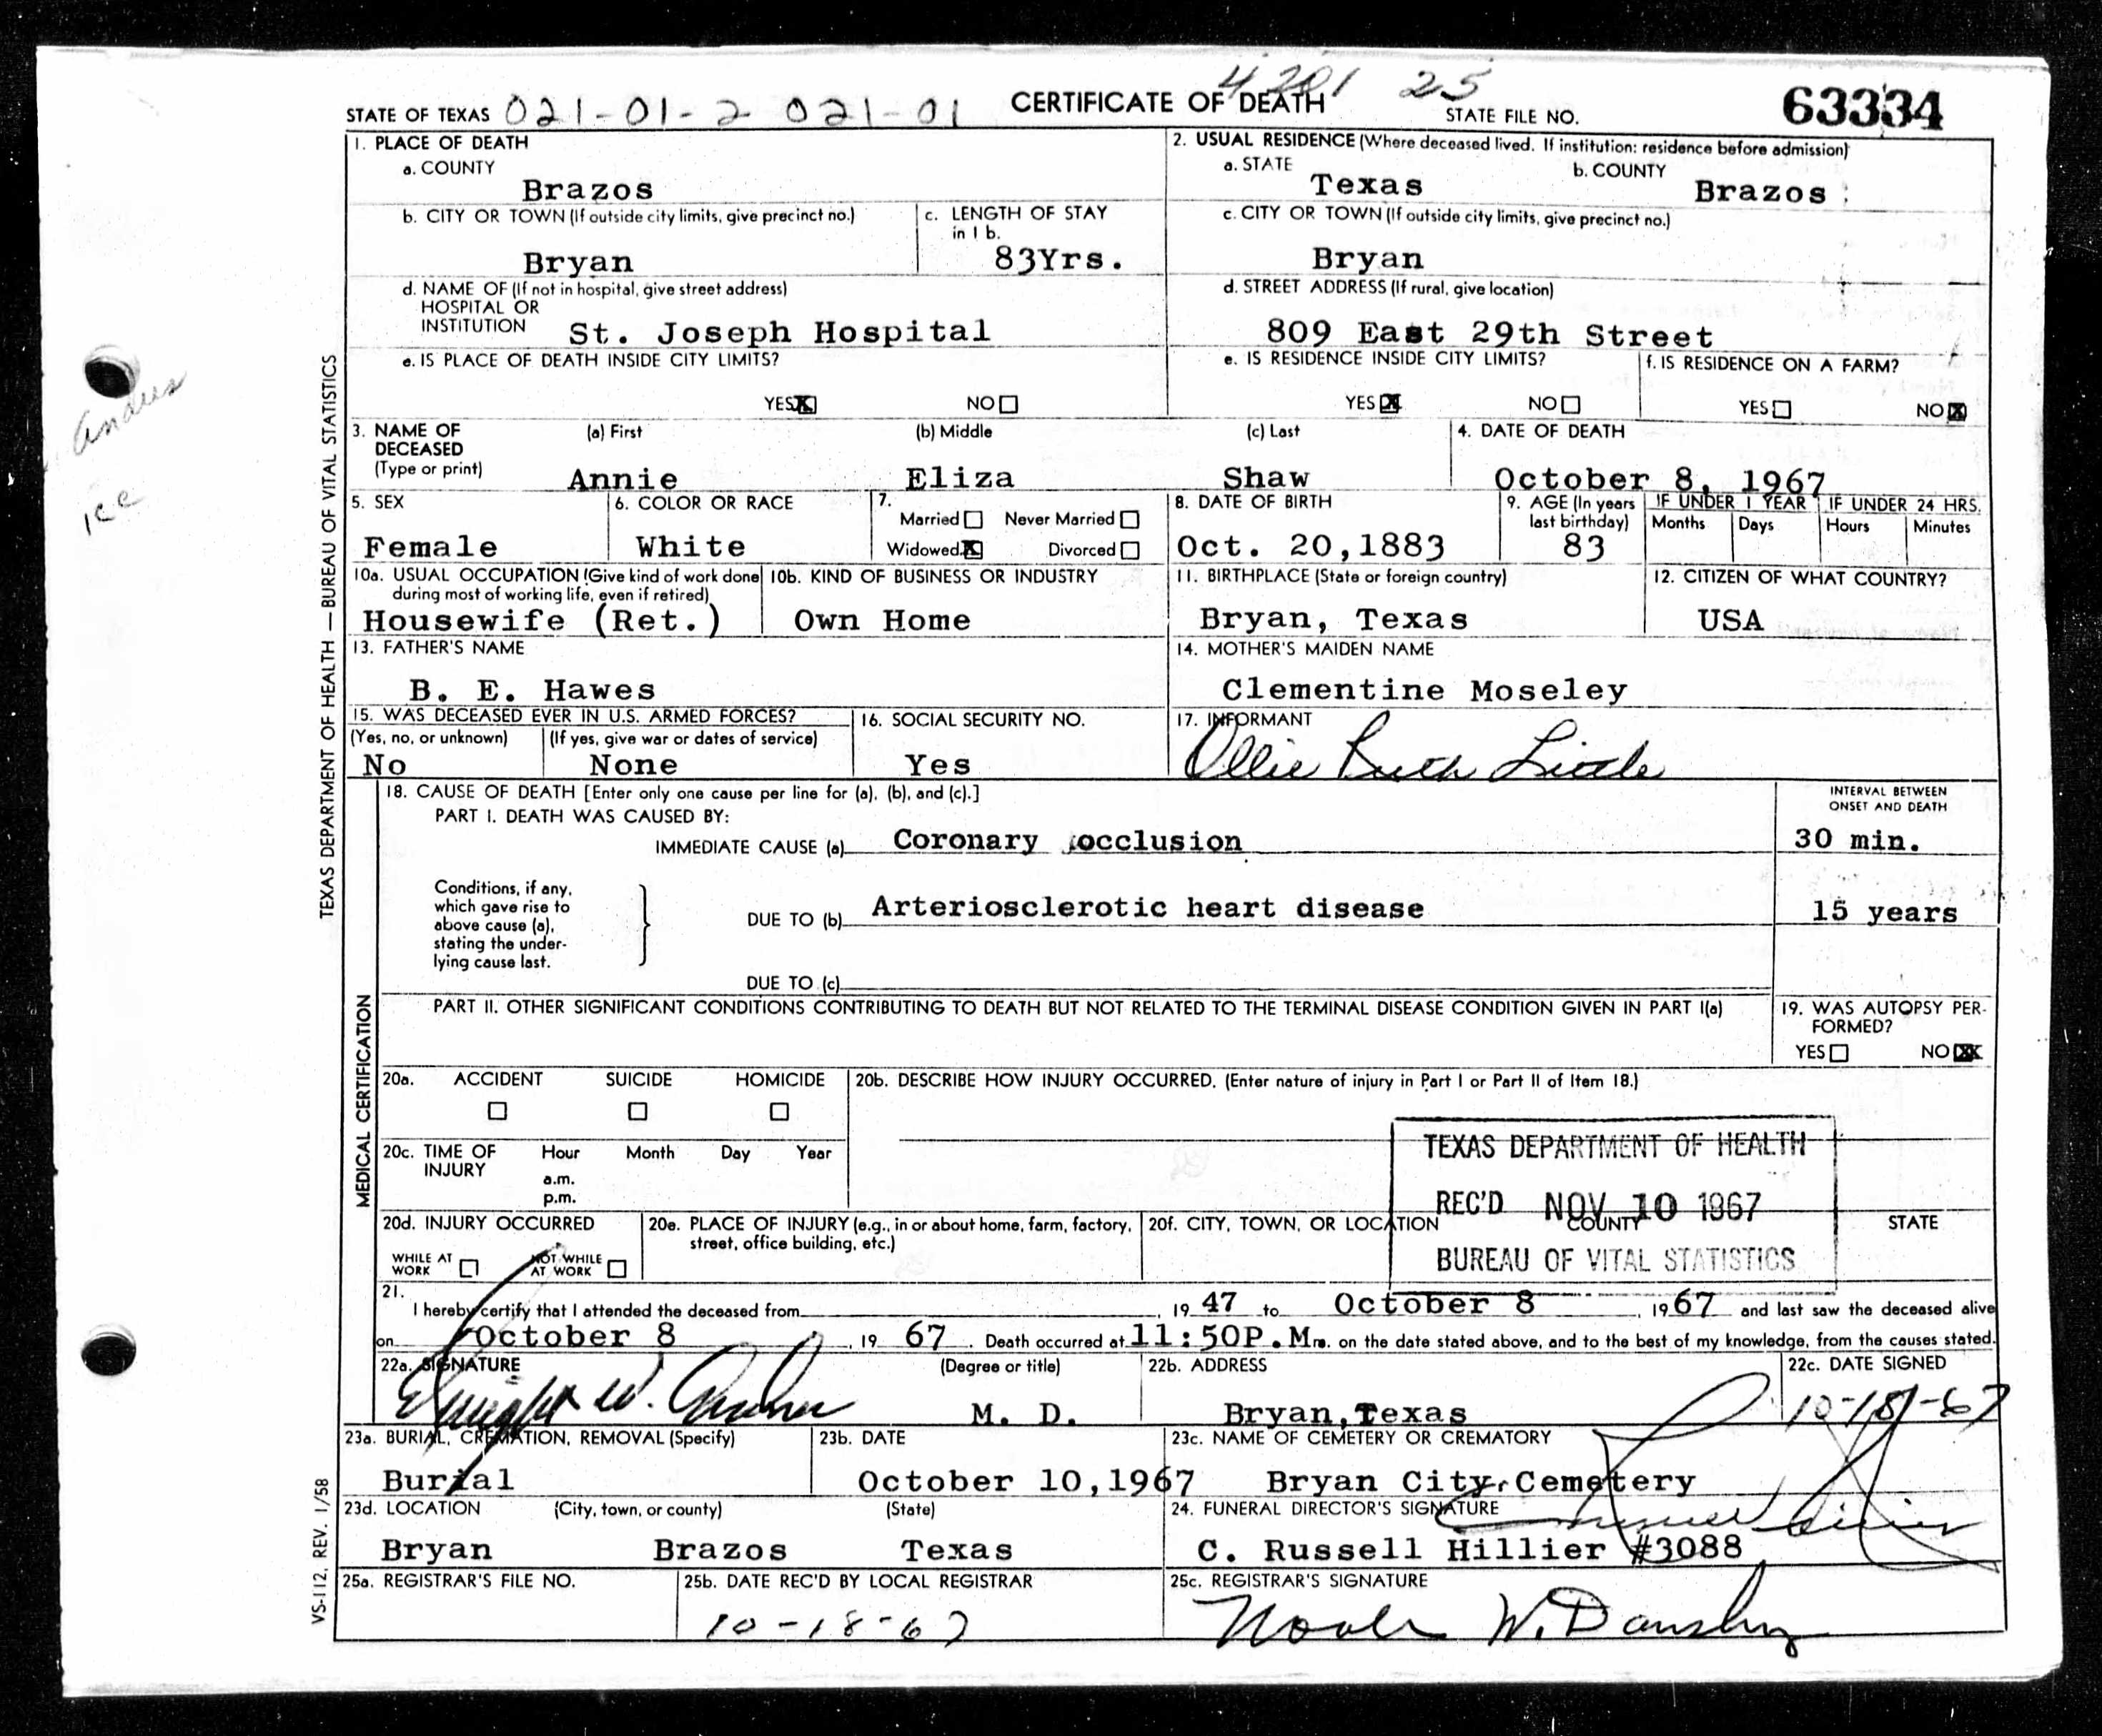 4201 25
STATE OF TEXAS 021-01-2 021-01 CERTIFICATE OF DEATH STATE FILE NO. 63334
1. PLACE OF DEATH
a. COUNTY
Brazos
2. USUAL RESIDENCE (Where deceased lived. If institution: residence before admission)
a. STATE b. COUNTY
Texas Brazos
b. CITY OR TOWN (If outside city limits, give precinct no.)
Bryan
c. LENGTH OF STAY
in 1 b.
83Yrs.
c. CITY OR TOWN (If outside city limits, give precinct no.)
Bryan
d. NAME OF (If not in hospital, give street address)
HOSPITAL OR
INSTITUTION St. Joseph Hospital
d. STREET ADDRESS (If rural, give location)
809 East 29th Street
e. IS PLACE OF DEATH INSIDE CITY LIMITS?
YES X NO
e. IS RESIDENCE INSIDE CITY LIMITS?
YES X NO
f. IS RESIDENCE ON A FARM?
YES NO X
3. NAME OF
DECEASED
(Type or print)
(a) First (b) Middle (c) Last
Annie Eliza Shaw
4. DATE OF DEATH
October 8, 1967
5. SEX
Female
6. COLOR OR RACE
White
7.
Married Never Married
Widowed X Divorced
8. DATE OF BIRTH
Oct. 20,1883
9. AGE (In years
last birthday)
83
IF UNDER 1 YEAR
Months Days
IF UNDER 24 HRS.
Hours Minutes
10a. USUAL OCCUPATION (Give kind of work done
during most of working life, even if retired)
Housewife (Ret.)
10b. KIND OF BUSINESS OR INDUSTRY
Own Home
11. BIRTHPLACE (State or foreign country)
Bryan, Texas
12. CITIZEN OF WHAT COUNTRY?
USA
13. FATHER'S NAME
B. E. Hawes
14. MOTHER'S MAIDEN NAME
Clementine Moseley
15. WAS DECEASED EVER IN U.S. ARMED FORCES?
(Yes, no, or unknown) (If yes, give war or dates of service)
No None
16. SOCIAL SECURITY NO.
Yes
17. INFORMANT
Ollie Ruth
18. CAUSE OF DEATH [Enter only one cause per line for (a), (b), and (c).]
PART I. DEATH WAS CAUSED BY:
IMMEDIATE CAUSE (a) Coronary occlusion
INTERVAL BETWEEN
ONSET AND DEATH
30 min.
Conditions, if any,
which gave rise to
above cause (a),
stating the under-
lying cause last.
DUE TO (b) Arteriosclerotic heart disease
15 years
DUE TO (c)
PART II. OTHER SIGNIFICANT CONDITIONS CONTRIBUTING TO DEATH BUT NOT RELATED TO THE TERMINAL DISEASE CONDITION GIVEN IN PART I(a)
19. WAS AUTOPSY PER-
FORMED?
YES NO XX
20a. ACCIDENT SUICIDE HOMICIDE
20b. DESCRIBE HOW INJURY OCCURRED. (Enter nature of injury in Part I or Part II of Item 18.)
20c. TIME OF
INJURY
Hour Month Day Year
a.m.
p.m.
TEXAS DEPARTMENT OF HEALTH
REC'D NOV 10 1967
BUREAU OF VITAL STATISTICS
20d. INJURY OCCURRED
WHILE AT
WORK
NOT WHILE
AT WORK
20e. PLACE OF INJURY (e.g., in or about home, farm, factory,
street, office building, etc.)
20f. CITY, TOWN, OR LOCATION COUNTY STATE
21.
I hereby certify that I attended the deceased from , 19 47 to October 8 , 19 67 and last saw the deceased alive
on October 8 , 19 67 . Death occurred at 11:50P.M m. on the date stated above, and to the best of my knowledge, from the causes stated.
22a. SIGNATURE (Degree or title)
Dwight W. M. D.
22b. ADDRESS
Bryan,Texas
22c. DATE SIGNED
10-18-67
23a. BURIAL, CREMATION, REMOVAL (Specify)
Burial
23b. DATE
October 10,1967
23c. NAME OF CEMETERY OR CREMATORY
Bryan City Cemetery
23d. LOCATION (City, town, or county) (State)
Bryan Brazos Texas
24. FUNERAL DIRECTOR'S SIGNATURE
C. Russell Hillier #3088
25a. REGISTRAR'S FILE NO.
25b. DATE REC'D BY LOCAL REGISTRAR
10-18-67
25c. REGISTRAR'S SIGNATURE
W. Dansby
TEXAS DEPARTMENT OF HEALTH — BUREAU OF VITAL STATISTICS
MEDICAL CERTIFICATION
VS-112, REV. 1/58